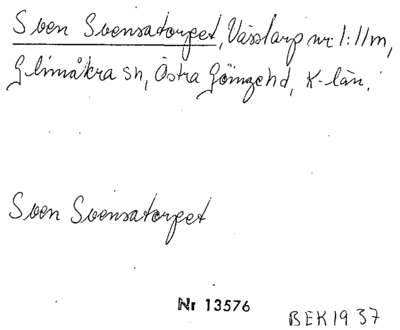 Sven Svensatorpet, Vässlarp nr 1:11 m,
Glimåkra sn, Östra Göinge hd, K-län.
Sven Svensatorpet
Nr 13576
BEK1937